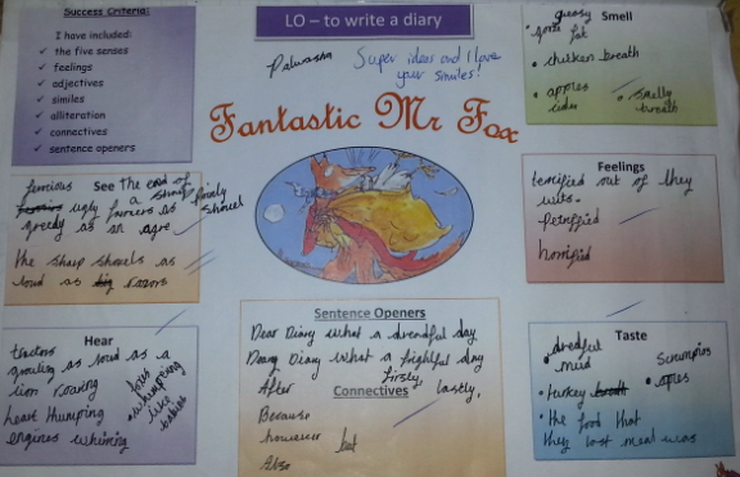 Success Criteria:
I have included:
✓ the five senses
✓ feelings
✓ adjectives
✓ similes
✓ alliteration
✓ connectives
✓ sentence openers
LO – to write a diary
Palwasha
Super ideas and I love
your similes!
Fantastic Mr Fox
Smell
greasy
goose fat
• chicken breath
• apples
cider
• smelly
breath
See
ferocious
the end of
a shovel
ugly farmers as
greedy as an ogre
lovely
shovel
the sharp shovels as
loud as big razors
Feelings
terrified out of they
wits.
Petriffied
horrified
Hear
tractors
growling as loud as a
lion roaring
heart thumping
engines whining
foxs
• whimpering
like
babies
Sentence Openers
Dear Diary what a dreadful day
Deary Diary what a frightful day
After
Connectives
firsly,
lastly,
Because
however
but
Also
Taste
• dredful
mud
Scrumpios
• apies
• turkey
• the food that
they last meal was